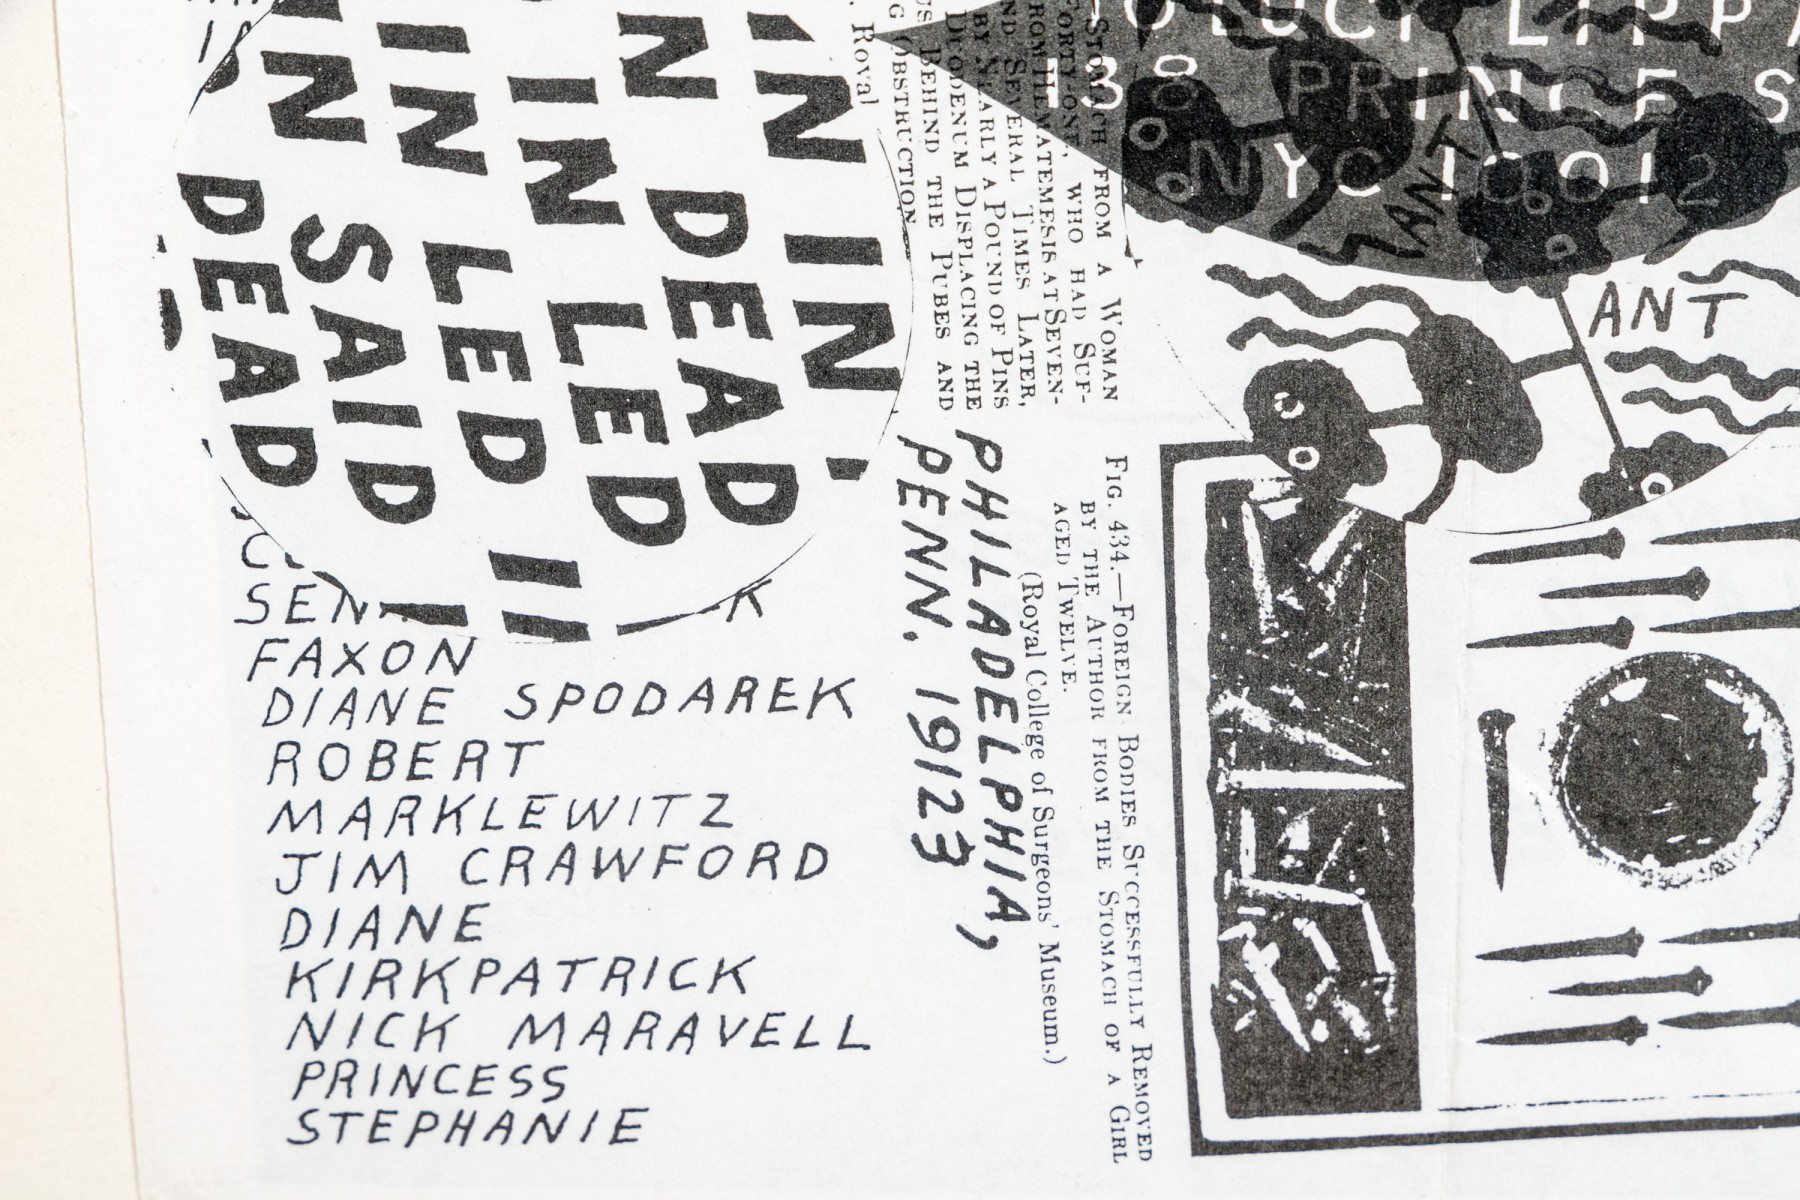 IN IN
IN DEAD
IN LED
IN LED
IN SAID
DEAD
FAXON
DIANE SPODAREK
ROBERT
MARKLEWITZ
JIM CRAWFORD
DIANE
KIRKPATRICK
NICK MARAVELL
PRINCESS
STEPHANIE
Royal
STOMACH FROM A WOMAN
FORTY-ONE, WHO HAD SUF-
FROM HEMATEMESIS AT SEVEN-
SEVERAL TIMES LATER,
BY NEARLY A POUND OF PINS
DUODENUM DISPLACING THE
BEHIND THE PUBES AND
OBSTRUCTION
PHILADELPHIA,
PENN. 19123
FIG. 434.—FOREIGN BODIES SUCCESSFULLY REMOVED
BY THE AUTHOR FROM THE STOMACH OF A GIRL
AGED TWELVE.
(Royal College of Surgeons' Museum.)
LUCY LIPPA
138 PRINCE S
NYC 10012
ANT
ANT